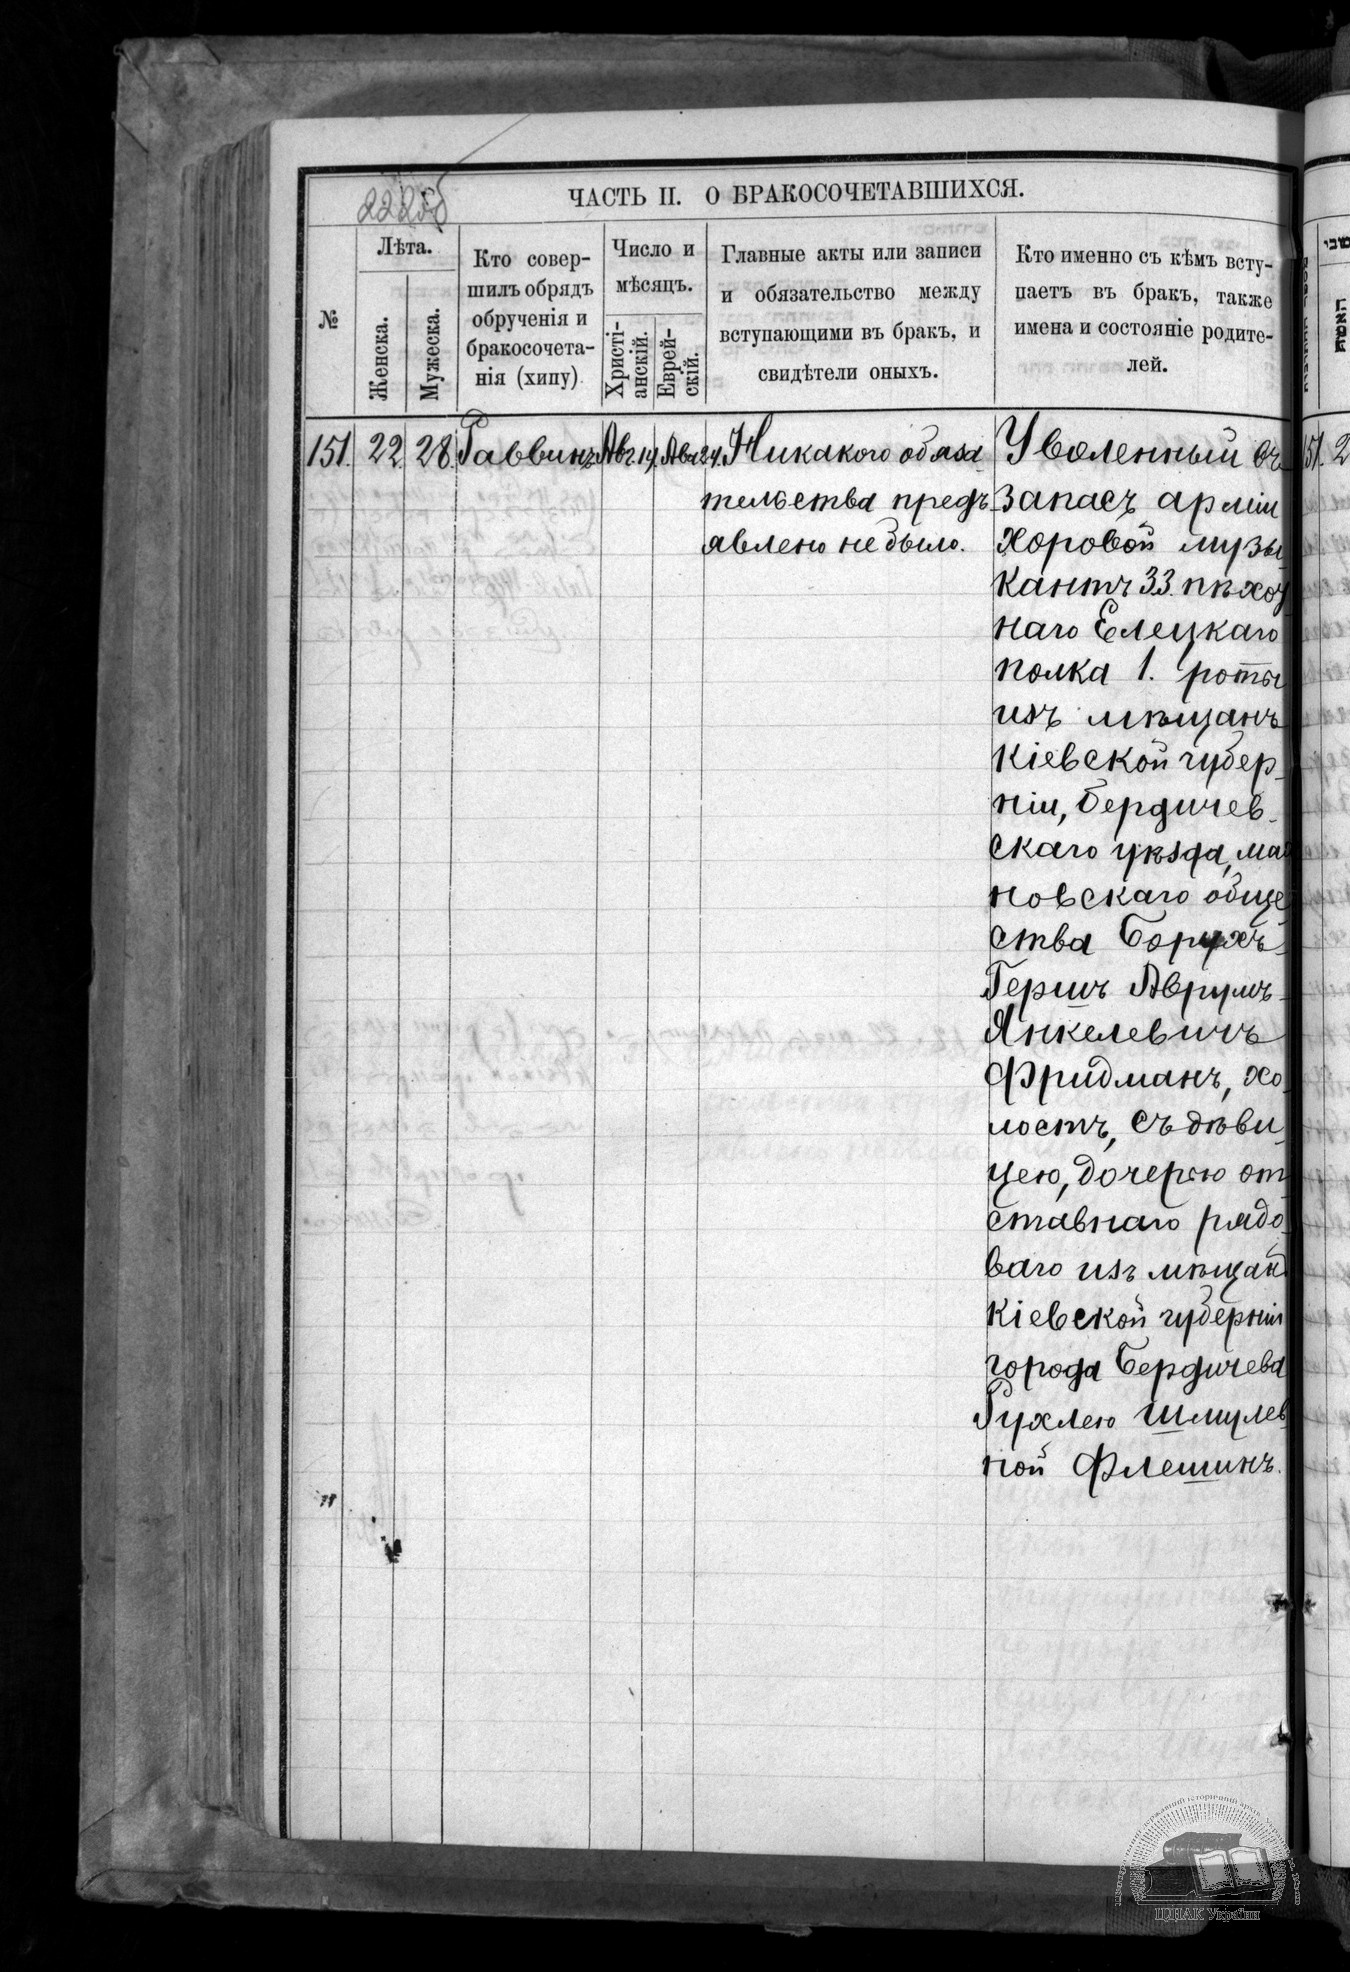 ЧАСТЬ II. О БРАКОСОЧЕТАВШИХСЯ.
№
Лѣта.
Женска.
Мужеска.
Кто совер-
шилъ обрядъ
обрученія и
бракосочета-
нія (хипу)
Число и
мѣсяцъ.
Христі-
анскій.
Еврей-
скій.
Главные акты или записи
и обязательство между
вступающими въ бракъ, и
свидѣтели оныхъ.
Кто именно съ кѣмъ всту-
паетъ въ бракъ, также
имена и состояніе родите-
лей.
151. 22 28. Раввинъ Авг. 14. Ав. 24. Никакого обяза
тельства предъ-
явлено не было.
Уволенный въ
запасъ арміи
хоровой музы
кантъ 33 пѣхот
наго Елецкаго
полка 1. роты
изъ мѣщанъ
Кіевской губер-
ніи, Бердичев-
скаго уѣзда,
новскаго обще
ства Борухъ-
Гершъ Аврумъ-
Янкелевичъ
Фридманъ, хо-
лостъ, съ дѣви-
цею, дочерью от
ставнаго рядо
ваго изъ мѣщан
Кіевской губерніи
города Бердичева
Рухлею Шмулев
ной Флешинъ.
151. 2
ЦДІАК України